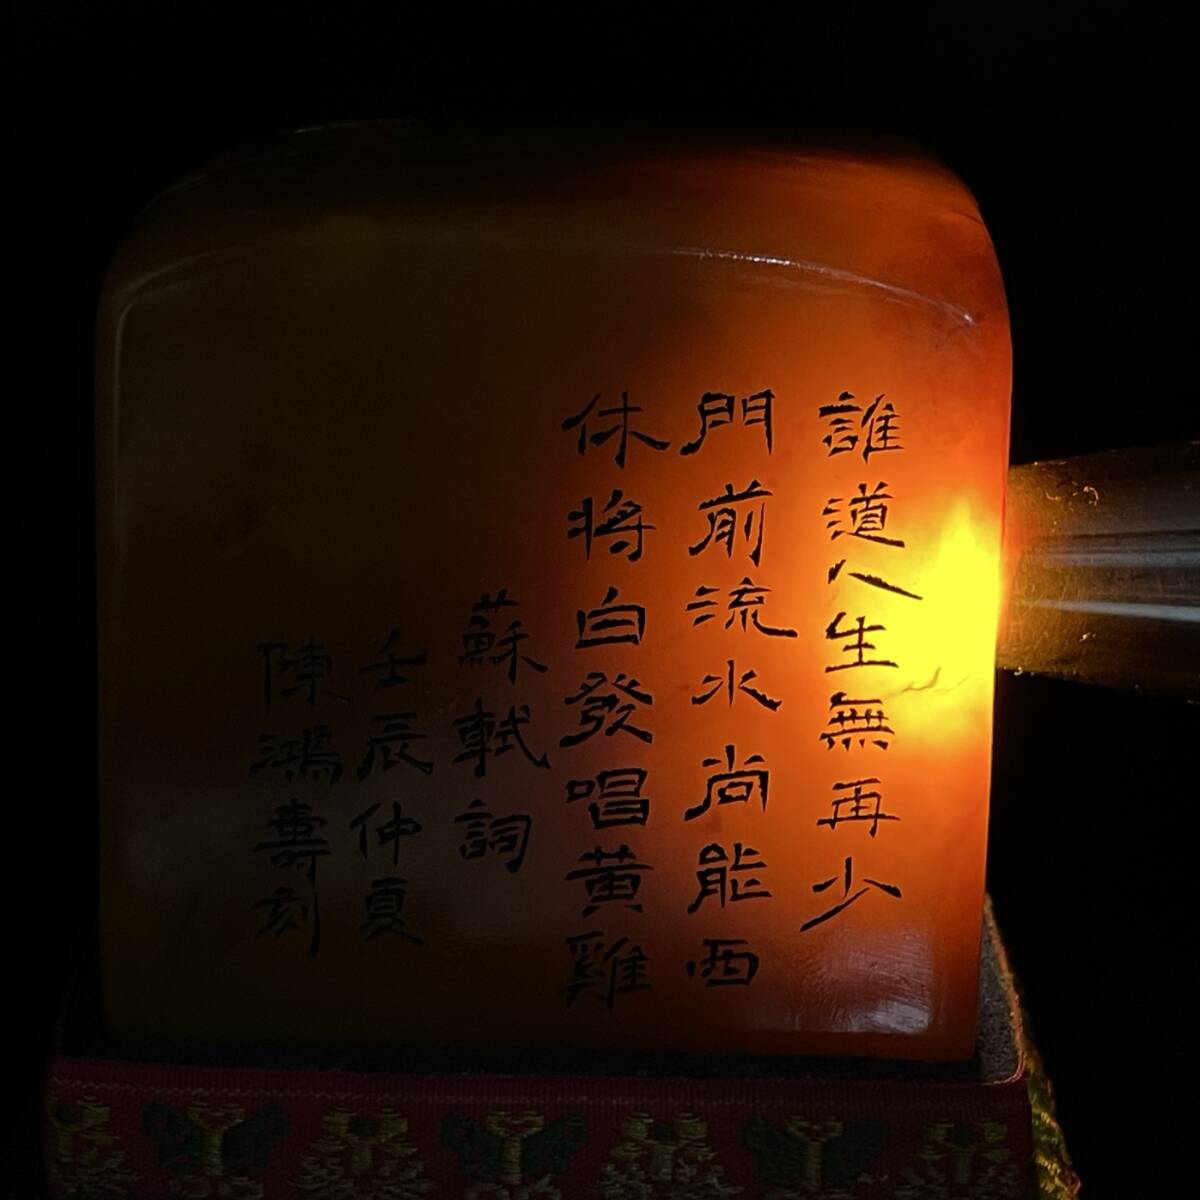 誰道人生無再少
門前流水尚能西
休将白發唱黄雞
蘇軾詞
壬辰仲夏
陳鴻壽刻